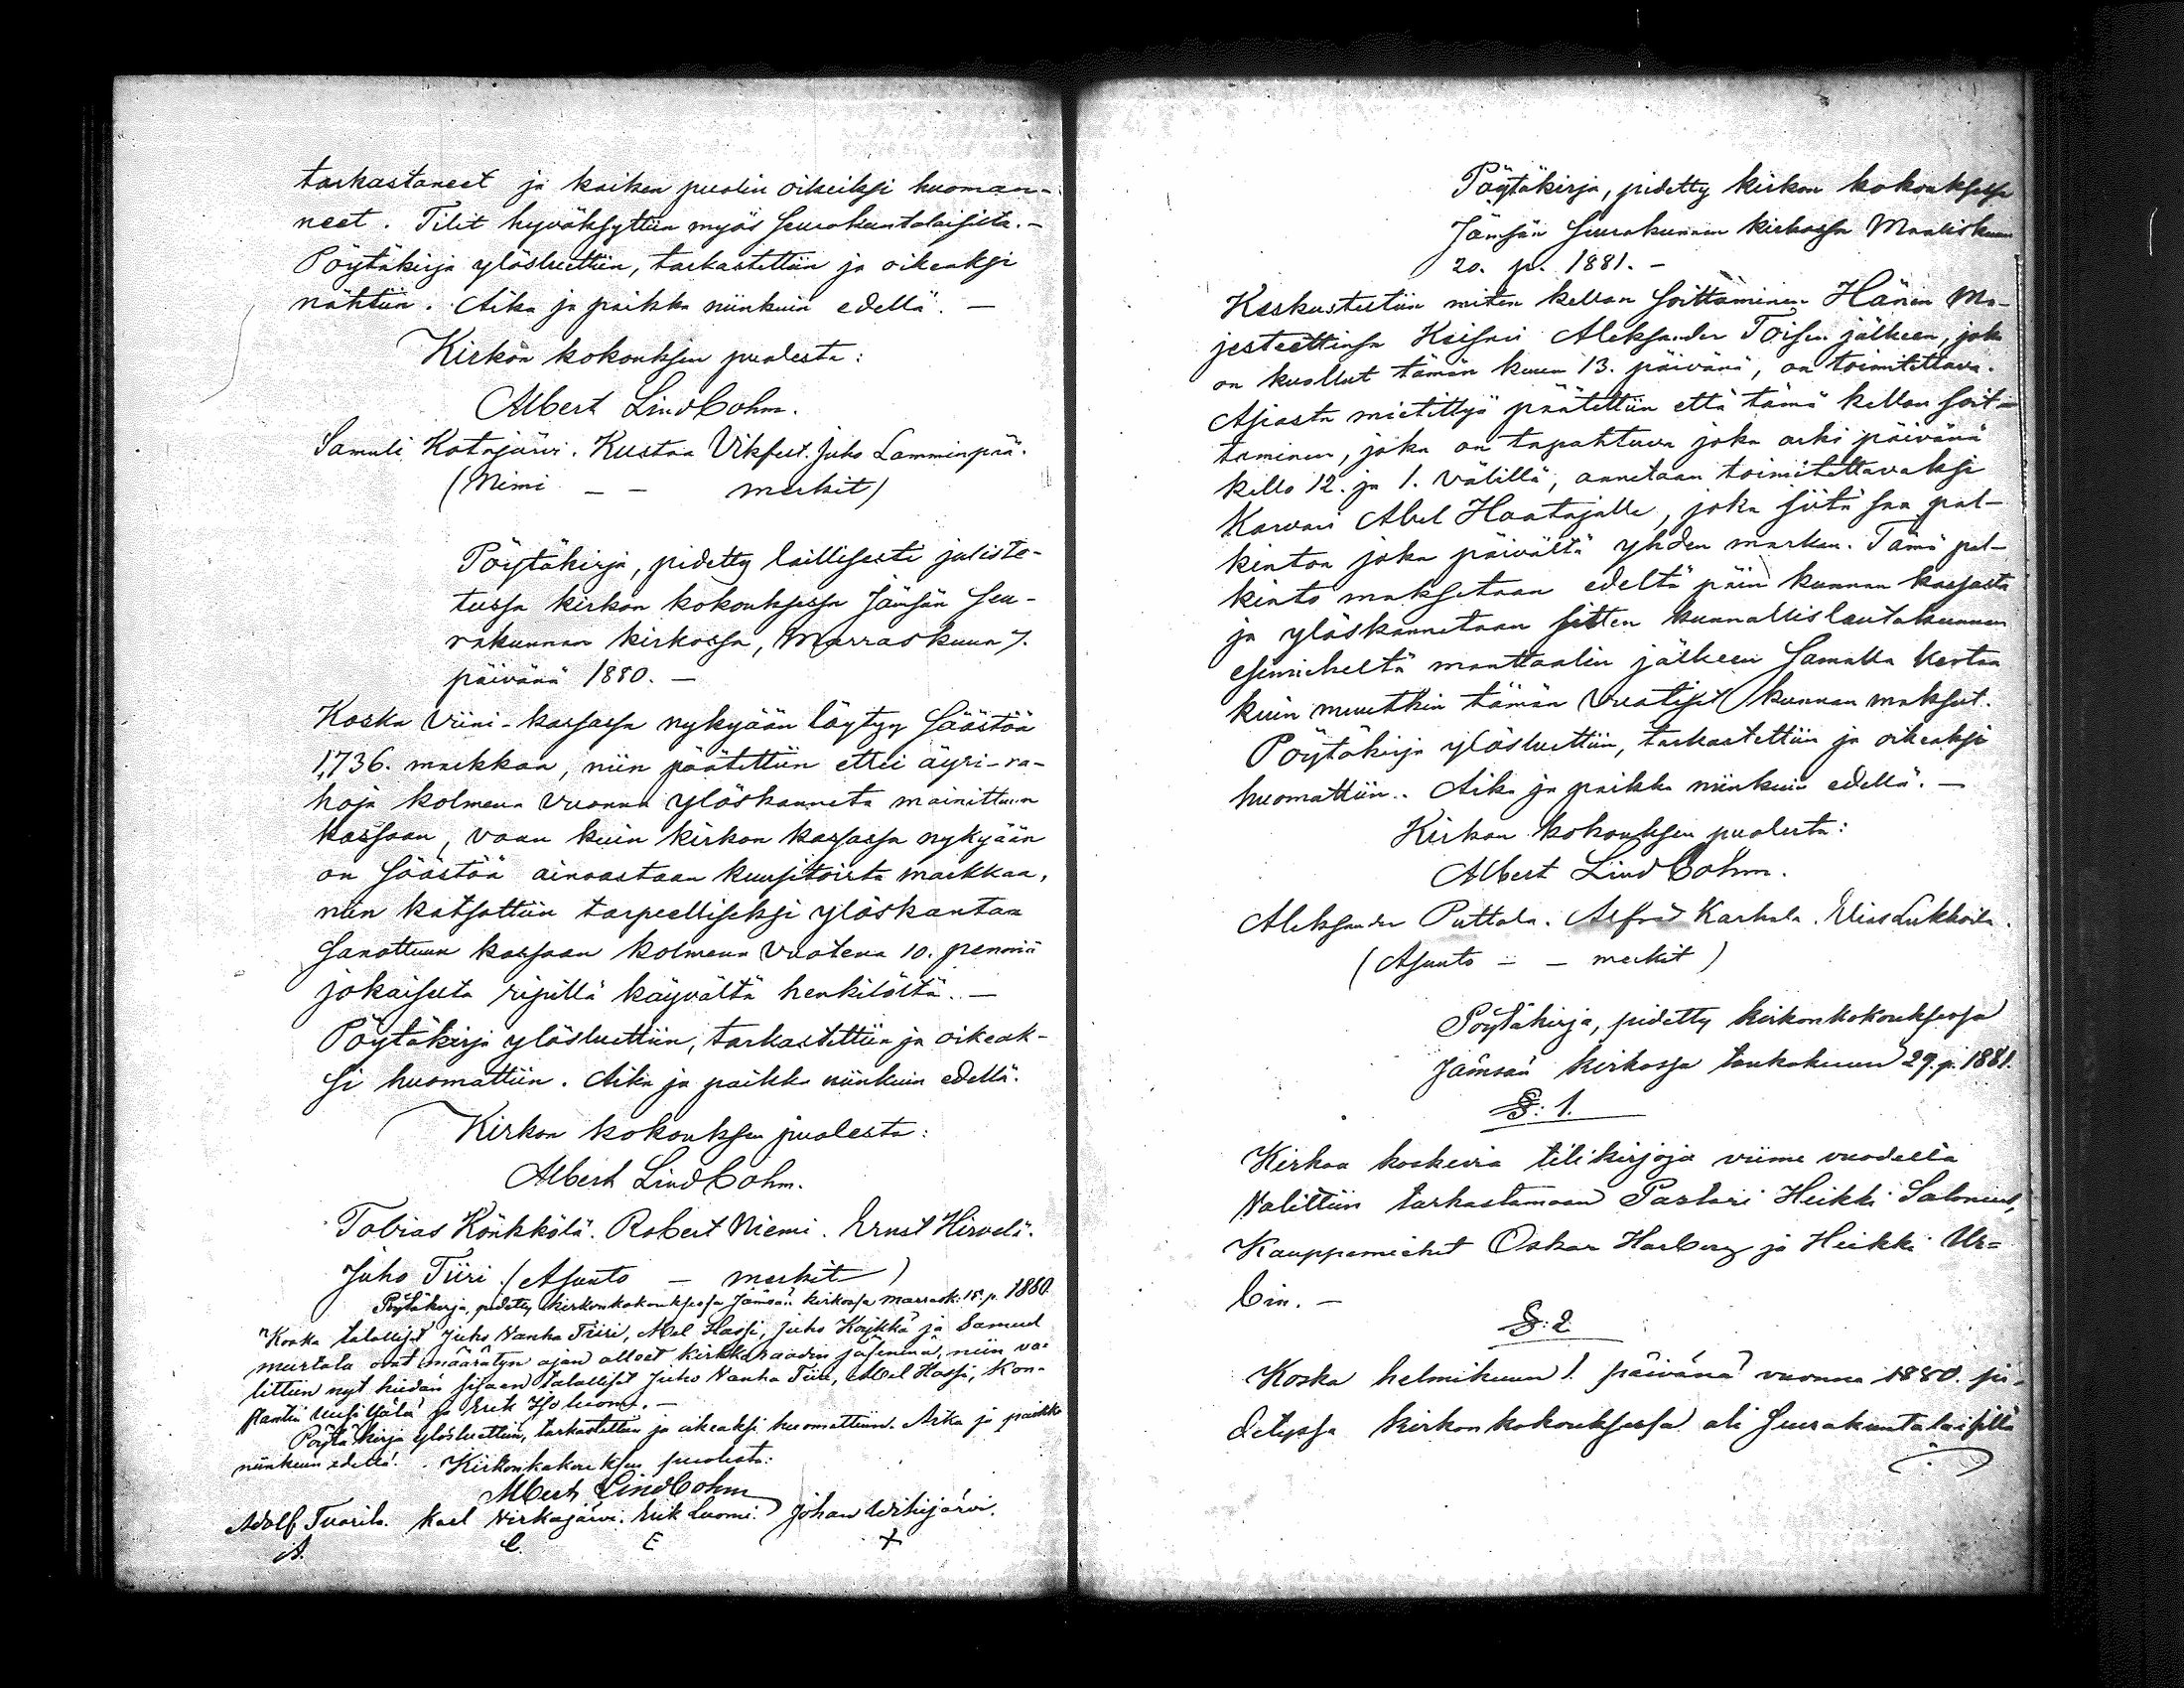 tarkastaneet ja kaiken puolin oikeiksi huoman-
neet. Tilit hyväksyttiin myös seurakuntalaisilta. -
Pöytäkirja ylösluettiin, tarkastettiin ja oikeaksi
nähtiin. Aika ja paikka niinkuin edellä. -
Kirkon kokouksen puolesta:
Albert Lindbohm.
Samuli Kotajärvi. Kustaa Vikfest. Juho Lamminpää.
(Nimi - - merkit)
Pöytäkirja, pidetty laillisesti juliste-
tussa kirkon kokouksessa Jämsän seu-
rakunnan kirkossa, Marraskuun 7.
päivänä 1880. -
Koska Viini-kassassa nykyään löytyy säästöä
1,736. markkaa, niin päätettiin ettei äyri-ra-
hoja kolmena vuonna ylöskanneta mainittuun
kassaan, vaan kuin kirkon kassassa nykyään
on säästöä ainoastaan kuusitoista markkaa,
niin katsottiin tarpeelliseksi ylöskantaa
sanottuun kassaan kolmena vuotena 10. penniä
jokaiselta ripillä käyvältä henkilöltä. -
Pöytäkirja ylösluettiin, tarkastettiin ja oikeak-
si huomattiin. Aika ja paikka niinkuin edellä.
Kirkon kokouksen puolesta:
Albert Lindbohm.
Tobias Könkkölä. Robert Niemi. Ernst Hirvelä.
Juho Tiiri. (Asunto - merkit)
Pöytäkirja, pidetty kirkonkokouksessa Jämsän kirkossa marrask: 15 p. 1880.
"Koska talolliset Juho Vanha Tiiri, Abel Hassi, Juho Kaikkä ja Samuel
Murtola ovat määrätyn ajan olleet kirkkoraadin jäseninä, niin va-
littiin nyt heidän sijaan talolliset Juho Vanha Tiiri, Abel Hassi, Kon-
stantin Uusi Ijälä ja Erik Iso luomi. -
Pöytäkirja ylösluettiin, tarkastettiin ja oikeaksi huomattiin. Aika ja paikka
niinkuin edellä. Kirkonkokouksen puolesta:
Albert Lindbohm
Adolf Tuorila. Karl Virkajärvi. Erik Luomi. Johan Wihijärvi.
A. C. E +
Pöytäkirja, pidetty kirkon kokouksessa
Jämsän seurakunnan kirkossa Maaliskuun
20. p. 1881. -
Keskusteltiin miten kellon soittaminen Hänen Ma-
jesteettinsa Keisari Aleksander Toisen jälkeen, joka
on kuollut tämän kuun 13. päivänä, on toimitettava.
Asiasta mietittyä päätettiin että tämä kellon soit-
taminen, joka on tapahtuva joka arki päivänä
kello 12. ja 1. välillä, annetaan toimitettavaksi
Karvari Abel Haatajalle, joka siitä saa pal-
kintoa joka päivältä yhden markan. Tämä pal-
kinto maksetaan edeltä päin kunnan kassasta
ja ylöskannetaan sitten kunnallislautakunnan
esimieheltä manttaalin jälkeen samalla kertaa
kuin muutkin tämän vuotiset kunnan maksut.
Pöytäkirja ylösluettiin, tarkastettiin ja oikeaksi
huomattiin. Aika ja paikka niinkuin edellä. -
Kirkon kokouksen puolesta:
Albert Lindbohm.
Aleksander Puttola. Alfred Karhula. Elias Lukkoila.
(Asunto - - merkit)
Pöytäkirja, pidetty kirkonkokouksessa
Jämsän kirkossa toukokuun 29. p. 1881.
§: 1.
Kirkkoa koskevia tilikirjoja viime vuodelta
valittiin tarkastamaan Pastori Heikki Salonius,
Kauppamiehet Oskar Harberg ja Heikki Ur=
bin. -
§: 2
Koska helmikuun 1. päivänä vuonna 1880. pi-
detyssä kirkonkokouksessa oli seurakuntalaisilla